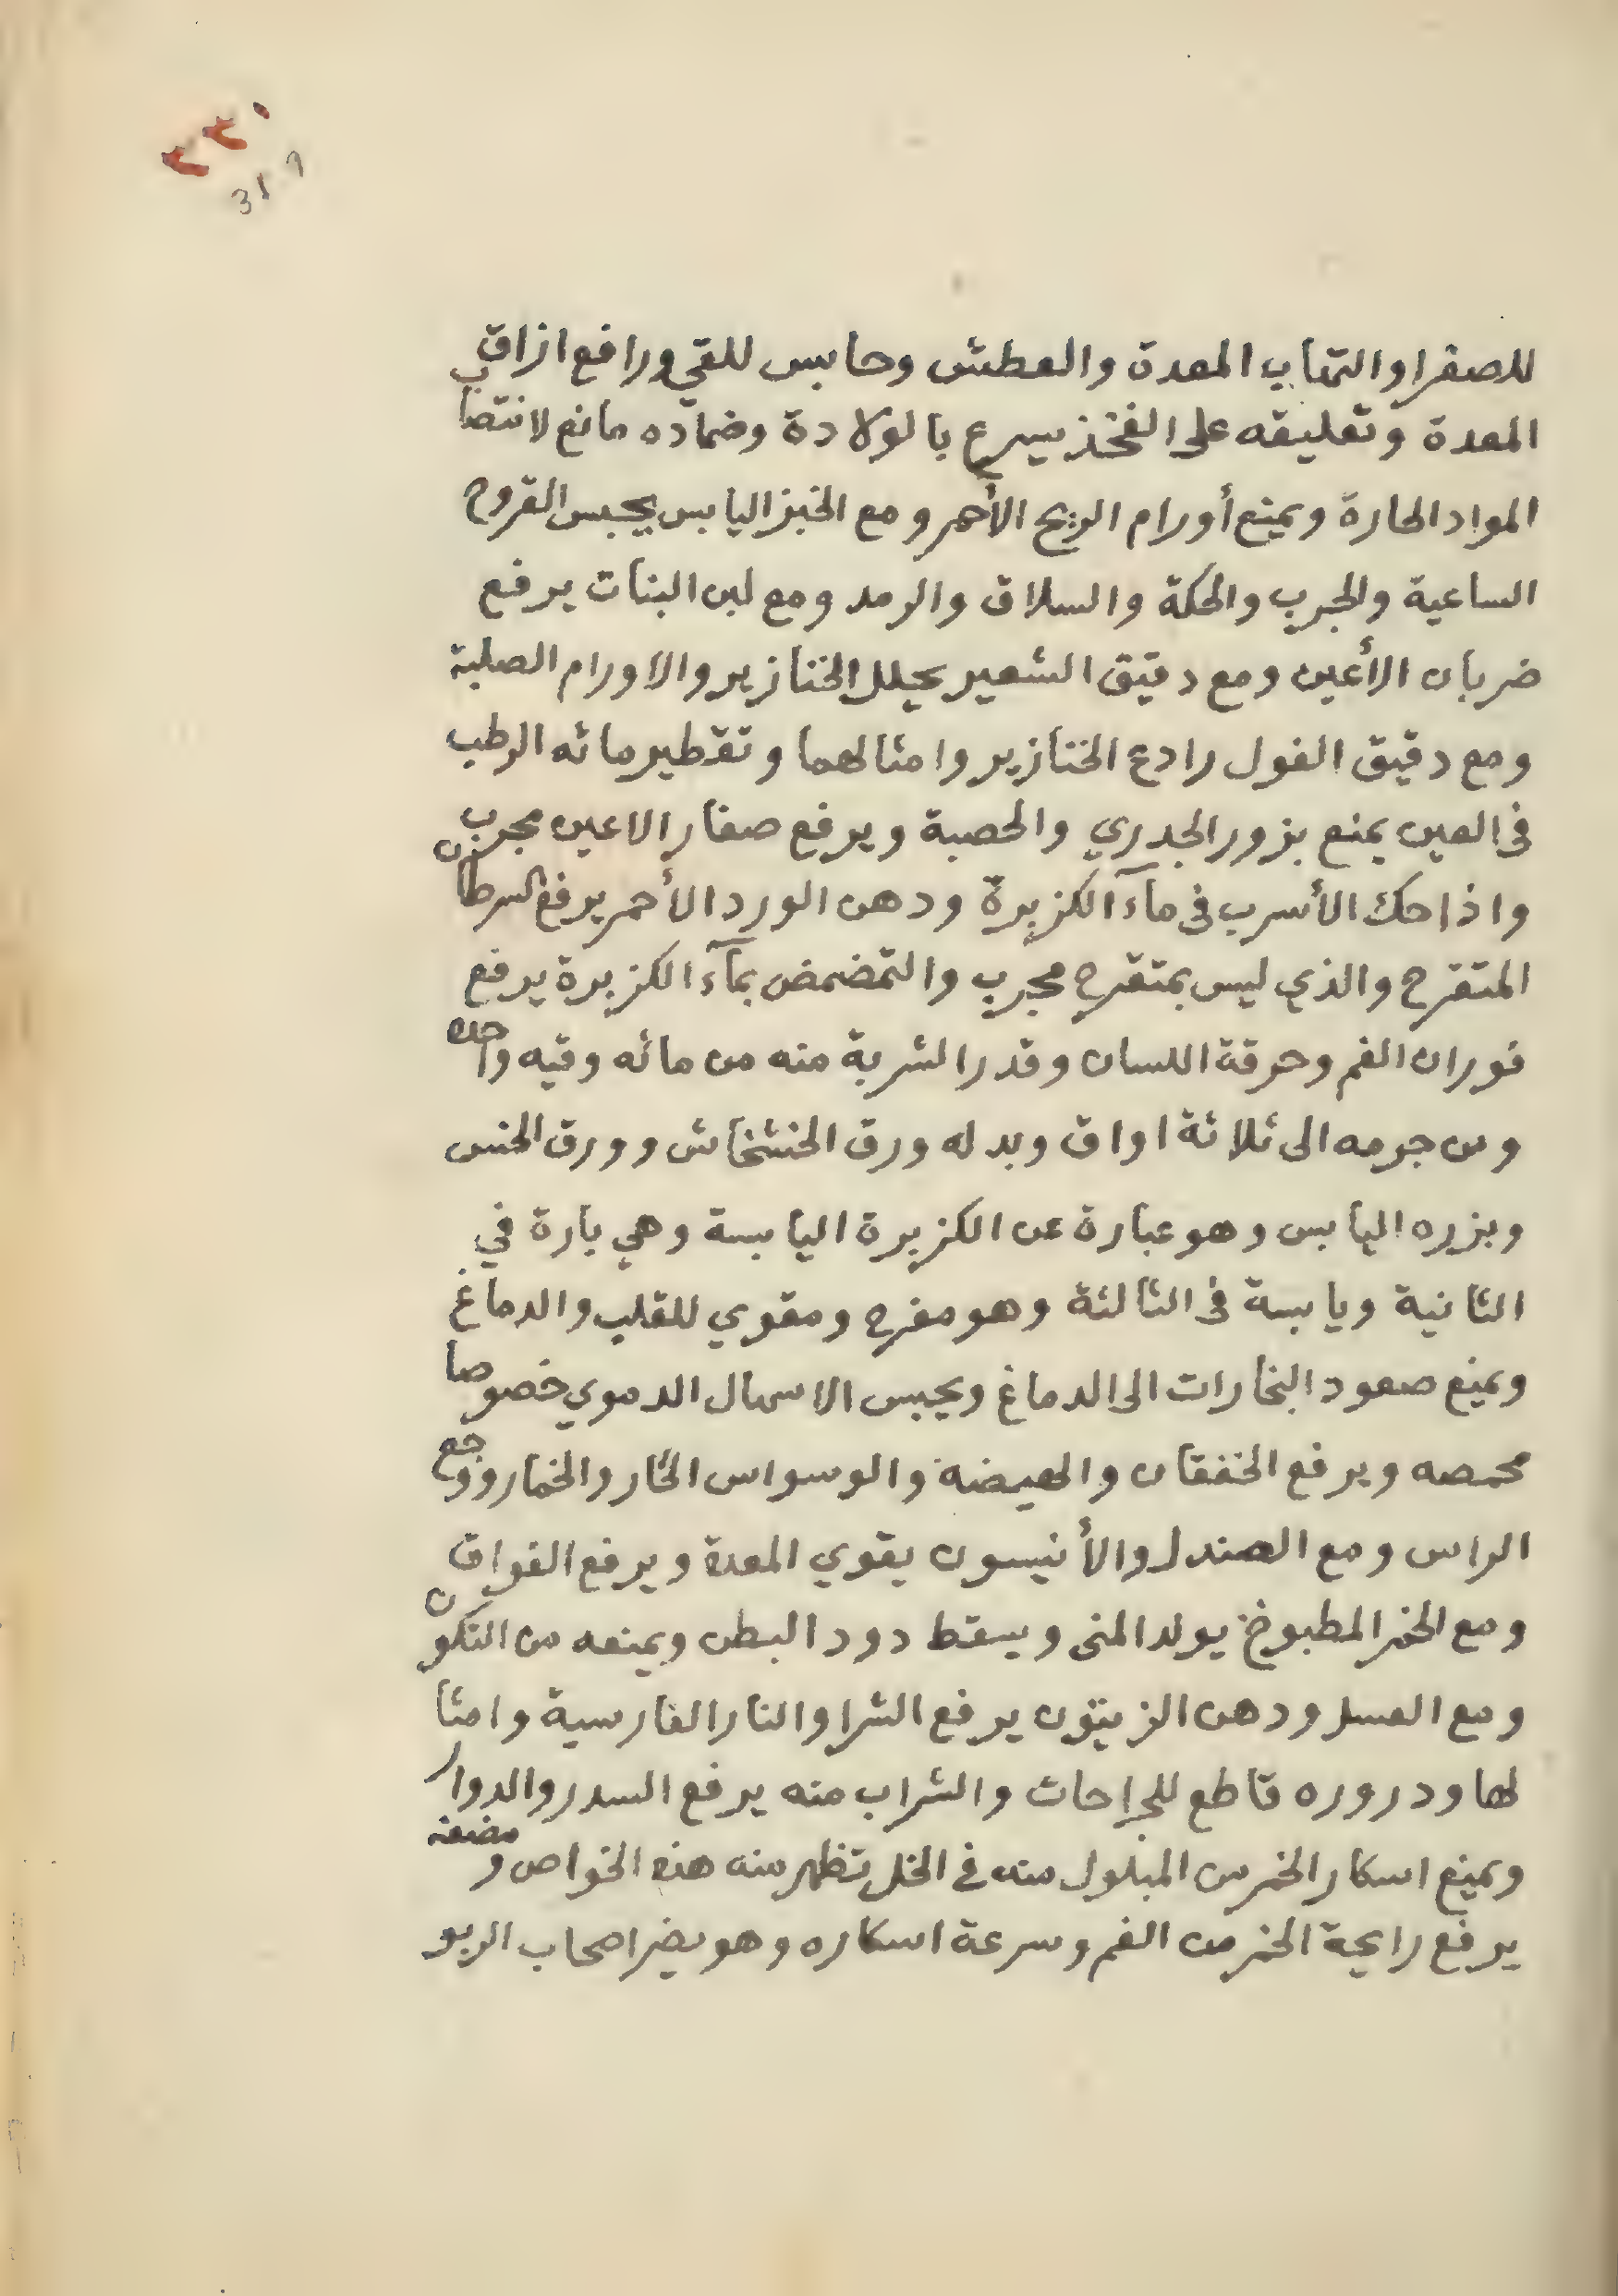 ٢٢٠
للصفرا والتهاب المعدة والعطش وحابس للقي ورافع ازاق
المعدة وتعليقه على الفخذ يسرع بالولادة وضماده مانع لانتصاب
المواد الحارة ويمنع أورام الريح الأحمر ومع الخبز اليابس يحبس القروح
الساعية والجرب والحكة والسلاق والرمد ومع لبن البنات يرفع
ضربان الأعين ومع دقيق الشعير يحلل الخنازير والاورام الصلبة
ومع دقيق الفول رادع الخنازير وامثالهما وتقطير مائه الرطب
في العين يمنع بزور الجدري والحصبة ويرفع صفار الاعين مجرب
واذا حك الأسرب في مآء الكزبرة ودهن الورد الأحمر يرفع السرطان
المتقرح والذي ليس بمتقرح مجرب والتمضمض بمآء الكزبرة يرفع
فوران الفم وحرقة اللسان وقدر الشربة منه من مائه وقيه واحده
ومن جرمه الى ثلاثة اواق وبدله ورق الخشخاش وورق الخس
وبزره اليابس وهو عبارة عن الكزبرة اليابسة وهي بارة في
الثانية ويابسة في الثالثة وهو مفرح ومقوي للقلب والدماغ
ويمنع صعود البخارات الى الدماغ ويحبس الاسهال الدموي خصوصا
محمصه ويرفع الخفقان والهيضه والوسواس الحار والخمار ووجع
الراس ومع الصندل والأنيسون يقوي المعدة ويرفع الفواق
ومع الخمر المطبوخ يولد المنى ويسقط دود البطن ويمنعه من التكون
ومع العسل ودهن الزيتون يرفع الشرا والنار الفارسية وامثا
لها ودروره قاطع للجراحات والشراب منه يرفع السدر والدوار
ويمنع اسكار الخمر من المبلول منه في الخل تظهر منه هذه الخواص ومضغه
يرفع رايحة الخمر من الفم وسرعة اسكاره وهو يضر اصحاب الربو